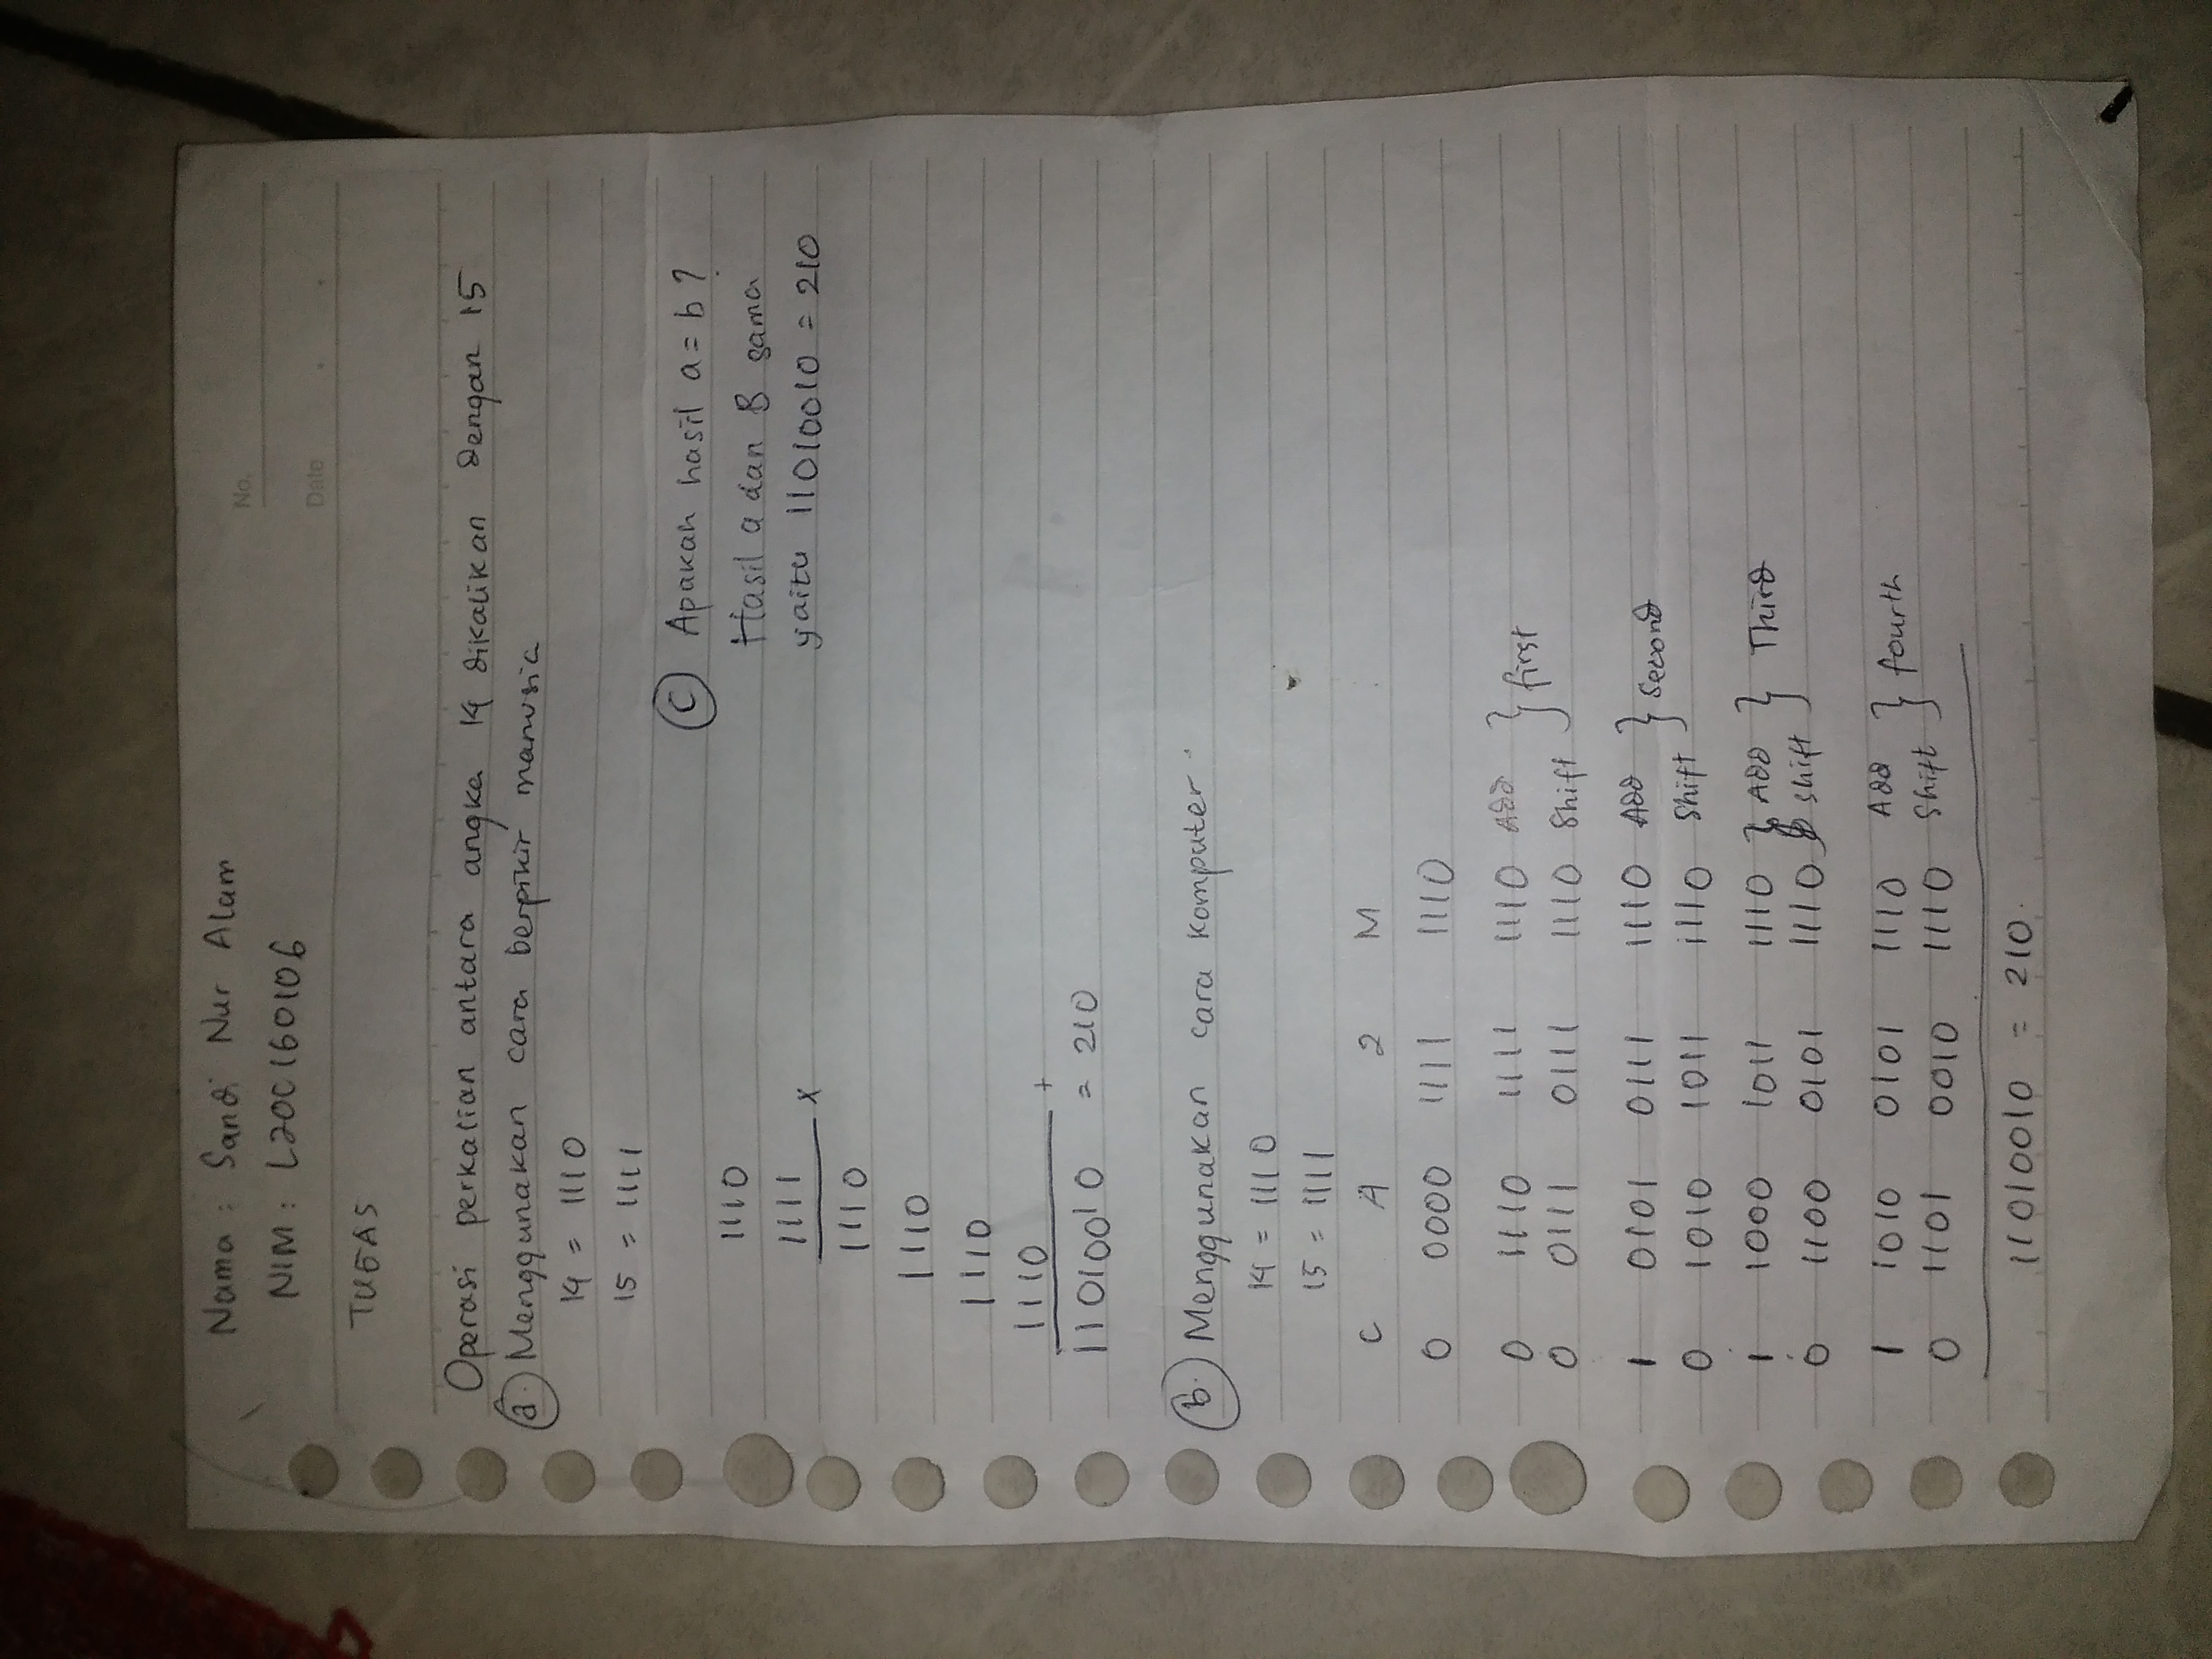 No.
Date
Nama : Sandi Nur Alam
NIM : L200160106
TUGAS
Operasi perkalian antara angka 14 dikalikan dengan 15
a. Menggunakan cara berpikir manusia
14 = 1110
15 = 1111
1110
1111 x
1110
1110
1110
1110 +
11010010 = 210
c Apakah hasil a = b?
Hasil a dan B sama
yaitu 11010010 = 210
b. Menggunakan cara komputer.
14 = 1110
15 = 1111
C A 2 M
0 0000 1111 1110
0 1110 1111 1110 Add } first
0 0111 0111 1110 Shift
1 0101 0111 1110 Add } Second
0 1010 1011 1110 Shift
1 1000 1011 1110 } Add } Third
0 1100 0101 1110 shift
1 1010 0101 1110 Add } fourth
0 1101 0010 1110 Shift
11010010 = 210.